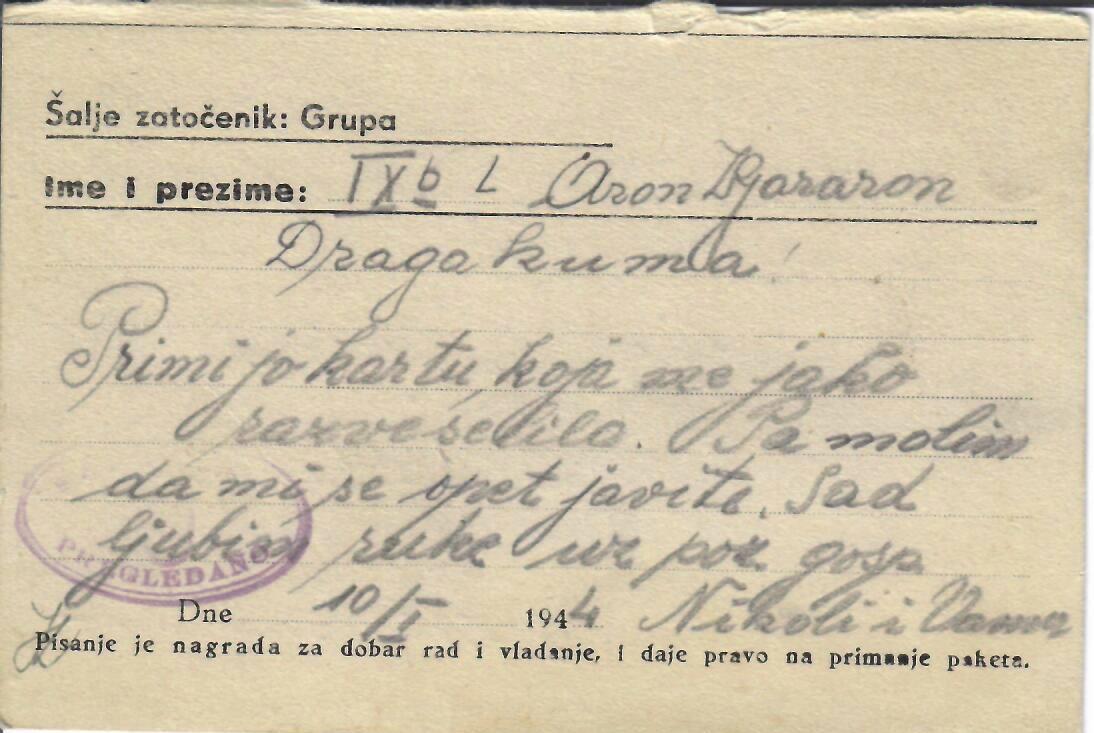 Šalje zatočenik: Grupa
Ime i prezime: IXb L Aron Djararon
Draga kuma!
Primi jo kartu koji me jako
razveselilo. Pa molim
da mi se opet javite. Sad
ljubim ruke uz poz. gosp
Dne 10/I 1944 Nikoli i Vama
Pisanje je nagrada za dobar rad i vladanje, i daje pravo na primanje paketa.
PREGLEDANO